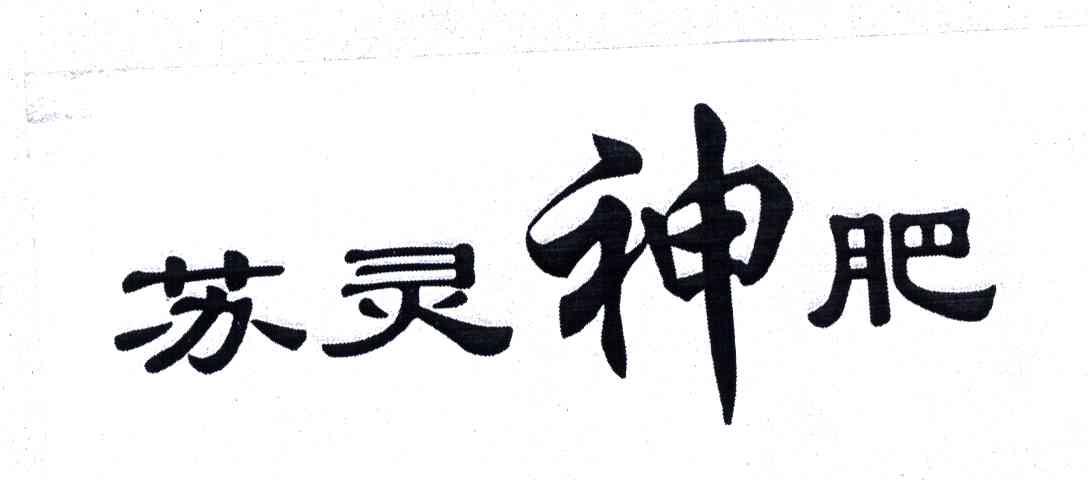 苏灵神肥